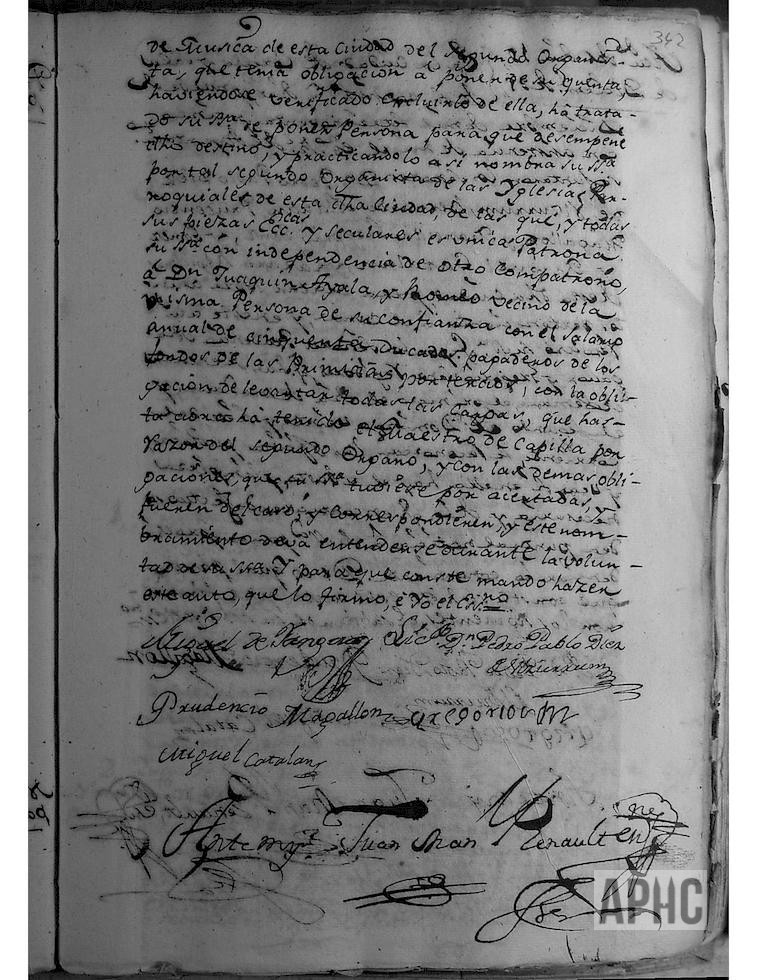 342
de Musica de esta Ciudad del segundo Organis-
ta, que tenia obligacion a poner de su quenta,
haviendose verificado excluirle de ella, ha trata-
do su Sria. de poner Persona, para que desempeñe
dho destino, y practicandolo asi nombra su Sria
por tal segundo Organista de las Yglesias Par-
roquiales de esta dha Ciudad, de las que, y todas
sus piezas Eccas. y seculares es unica Patrona
su Sria. con independencia de otro Compatrono,
á Dn Juaquin Ayala, y Romeo vecino de la
misma Persona de su confianza con el salario
anual de cinquenta Ducados, pagaderos de los
fondos de las Primicias, por tercios, con la obli-
gacion de levantar todas las Cargas, que has-
ta aora há tenido el Maestro de Capilla por
razon del segundo Organo, y con las demas obli-
gaciones, que su Sria. tubiere por acertadas, y
fueren del caso, y correspondieren, y este nom-
bramiento deva entenderse durante la volun-
tad de su Sria. Y para que conste mando hazer
este auto, que lo firmó, é Yo el Essno.
Miguel de Licdo. Dn Pedro Pablo Diez
Magallon de Ulzurrum
Prudencio Magallon Gregorio
Miguel Catalan
Ante mi Juan Renault
APHC